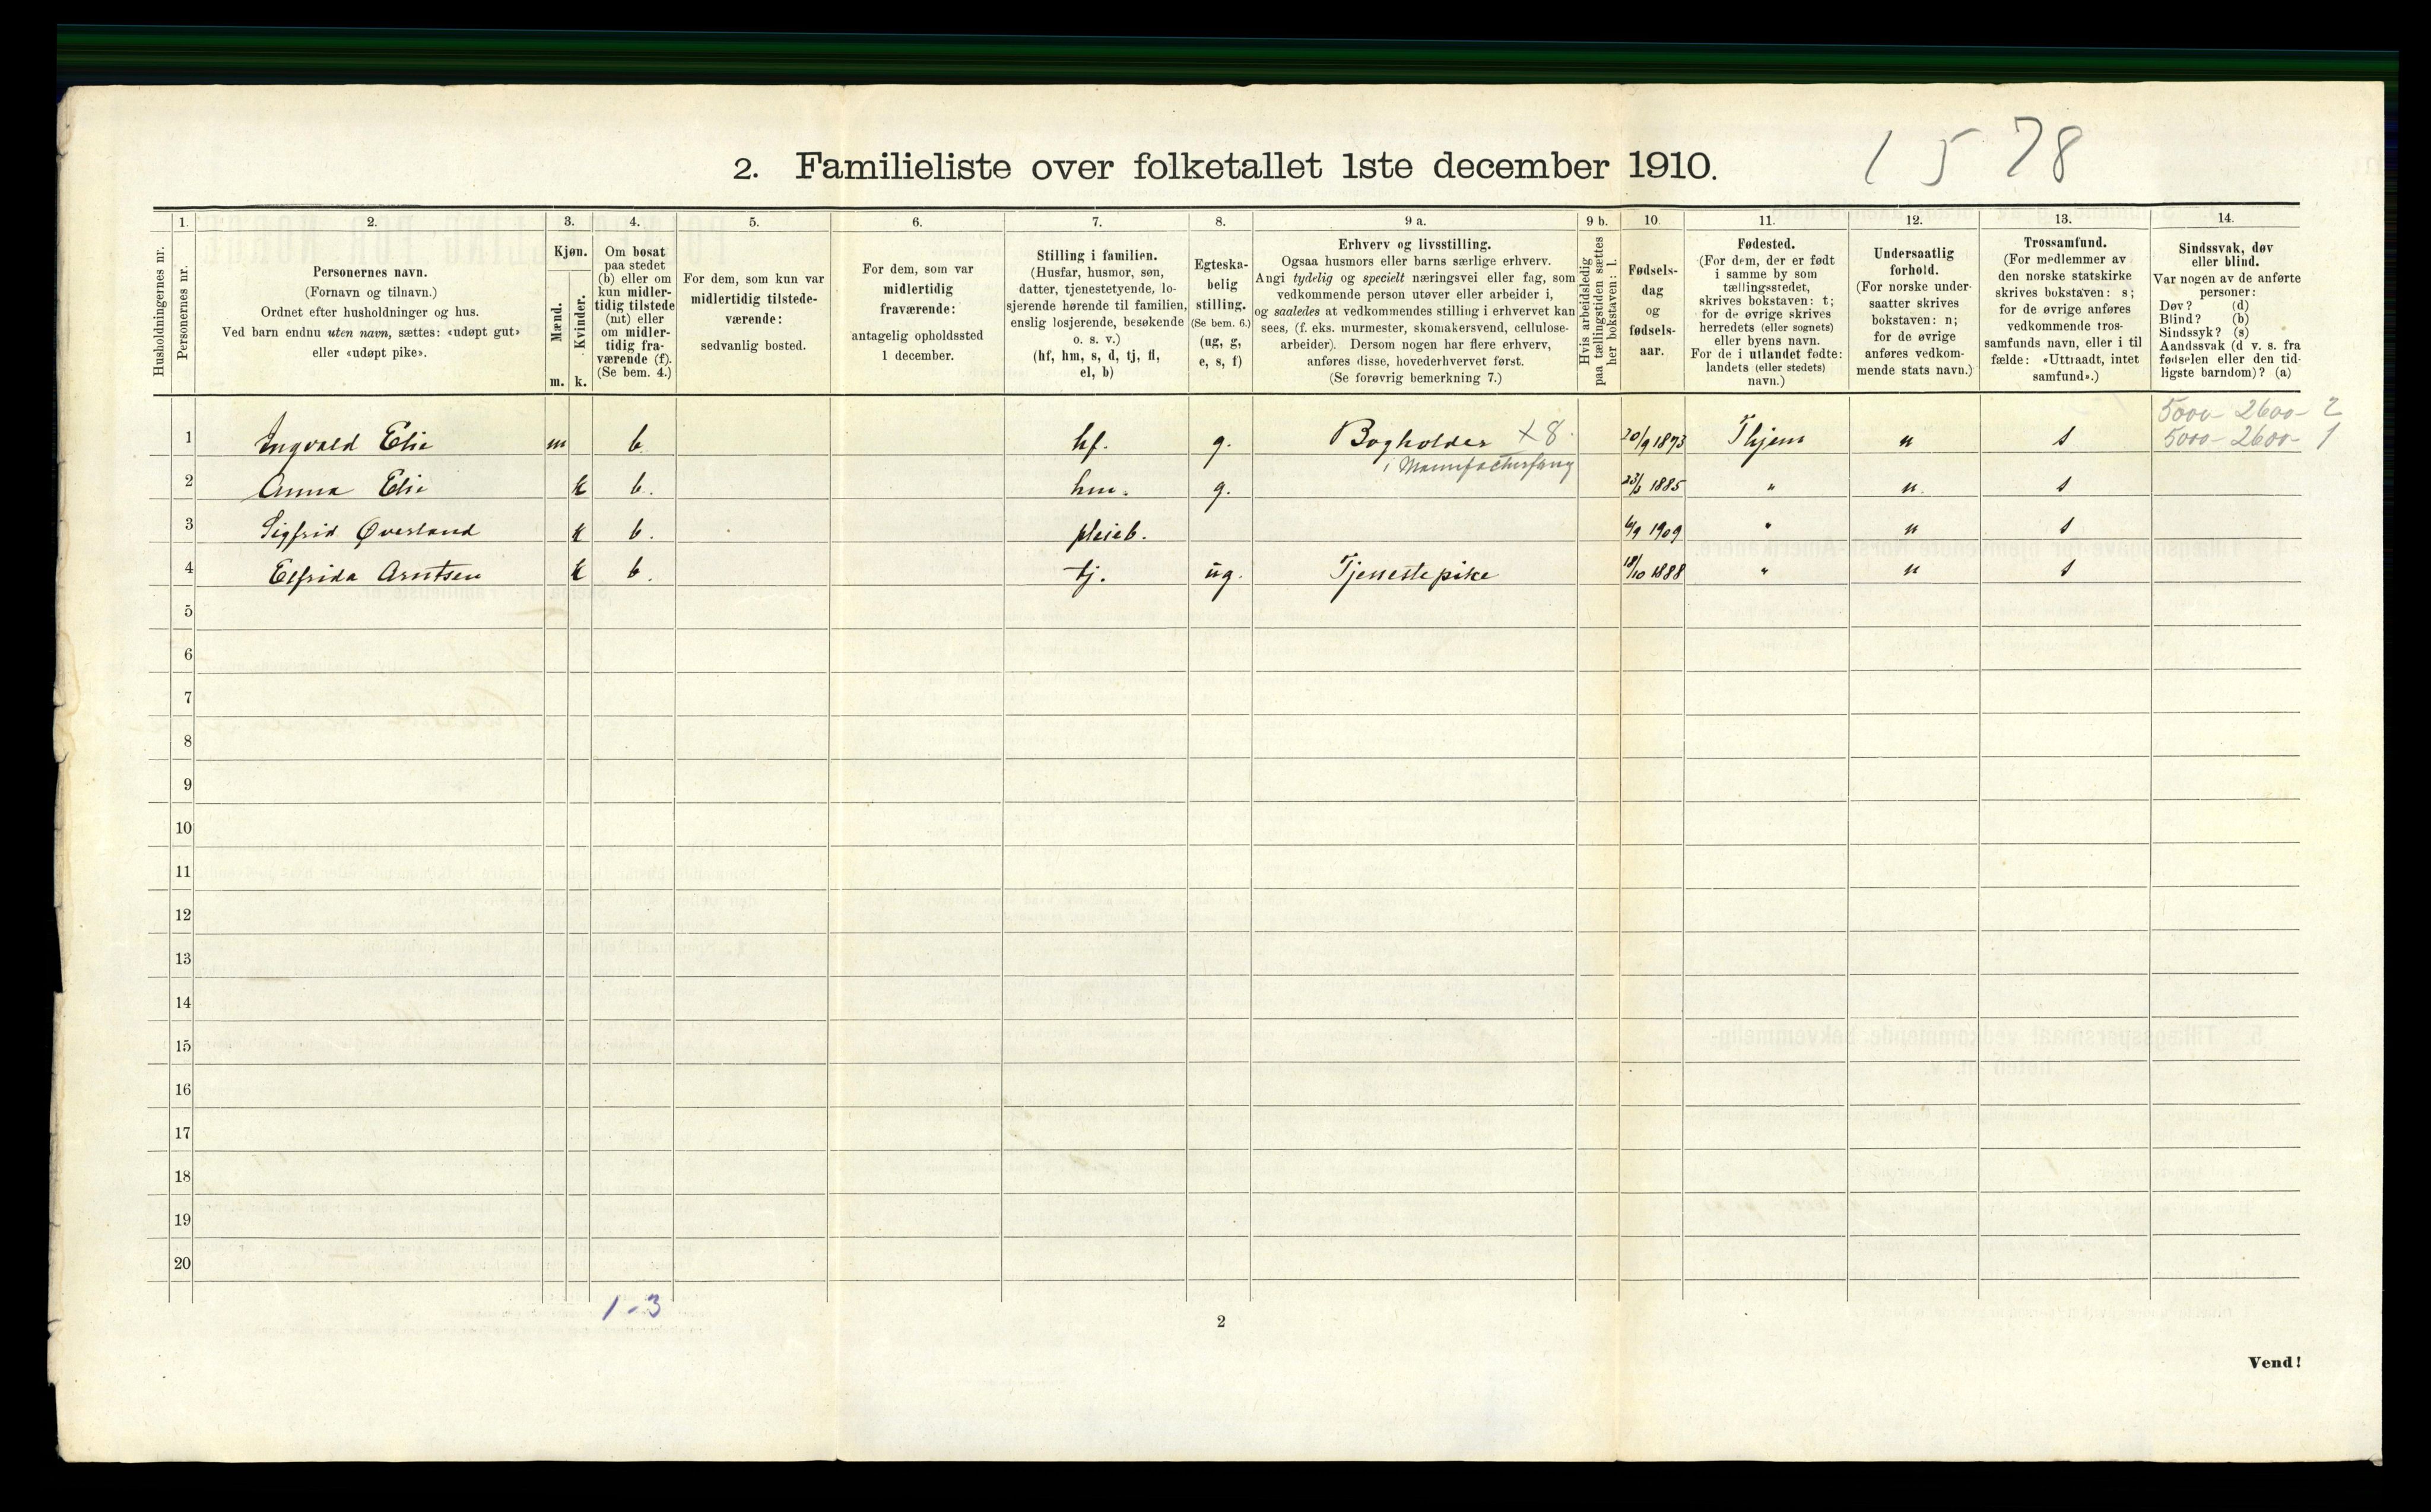 1 5 78
2. Familieliste over folketallet 1ste december 1910.
1. 2. 3. 4. 5. 6. 7. 8. 9 a. 9 b. 10. 11. 12. 13. 14.
Husholdningernes nr.
Personernes nr.
Personernes navn.
(Fornavn og tilnavn.)
Ordnet efter husholdninger og hus.
Ved barn endnu uten navn, sættes: «udøpt gut»
eller «udøpt pike».
Kjøn.
Mænd.
Kvinder.
m. k.
Om bosat
paa stedet
(b) eller om
kun midler-
tidig tilstede
(mt) eller
om midler-
tidig fra-
værende (f).
(Se bem. 4.)
For dem, som kun var
midlertidig tilstede-
værende:
sedvanlig bosted.
For dem, som var
midlertidig
fraværende:
antagelig opholdssted
1 december.
Stilling i familien.
(Husfar, husmor, søn,
datter, tjenestetyende, lo-
sjerende hørende til familien,
enslig losjerende, besøkende
o. s. v.)
(hf, hm, s, d, tj, fl,
el, b)
Egteska-
belig
stilling.
(Se bem. 6.)
(ug, g,
e, s, f)
Erhverv og livsstilling.
Ogsaa husmors eller barns særlige erhverv.
Angi tydelig og specielt næringsvei eller fag, som
vedkommende person utøver eller arbeider i,
og saaledes at vedkommendes stilling i erhvervet kan
sees, (f. eks. murmester, skomakersvend, cellulose-
arbeider). Dersom nogen har flere erhverv,
anføres disse, hovederhvervet først.
(Se forøvrig bemerkning 7.)
Hvis arbeidsledig
paa tællingstiden sættes
her bokstaven: l.
Fødsels-
dag
og
fødsels-
aar.
Fødested.
(For dem, der er født
i samme by som
tællingsstedet,
skrives bokstaven: t;
for de øvrige skrives
herredets (eller sognets)
eller byens navn.
For de i utlandet fødte:
landets (eller stedets)
navn.)
Undersaatlig
forhold.
(For norske under-
saatter skrives
bokstaven: n;
for de øvrige
anføres vedkom-
mende stats navn.)
Trossamfund.
(For medlemmer av
den norske statskirke
skrives bokstaven: s;
for de øvrige anføres
vedkommende tros-
samfunds navn, eller i til
fælde: «Uttraadt, intet
samfund».)
Sindssvak, døv
eller blind.
Var nogen av de anførte
personer:
Døv? (d)
Blind? (b)
Sindssyk? (s)
Aandssvak (d v. s. fra
fødselen eller den tid-
ligste barndom)? (a)
5000- 2600- 2
1 Ingvald Elie m b. hf. g. Bogholder +8. 20/9 1873 Thjem n s 5000- 2600- 1
i Manufacturforretg
2 Anna Elie k b. hm. g. 23/6 1885 " n. s
3 Sigfrid Øverland k b. pleieb. 6/9 1909 " n s
4 Elfrida Arntsen k b. tj. ug. Tjenestepike 18/10 1888 " n s
5
6
7
8
9
10
11
12
13
14
15
16
17
18
19
20
1-3
2
Vend!